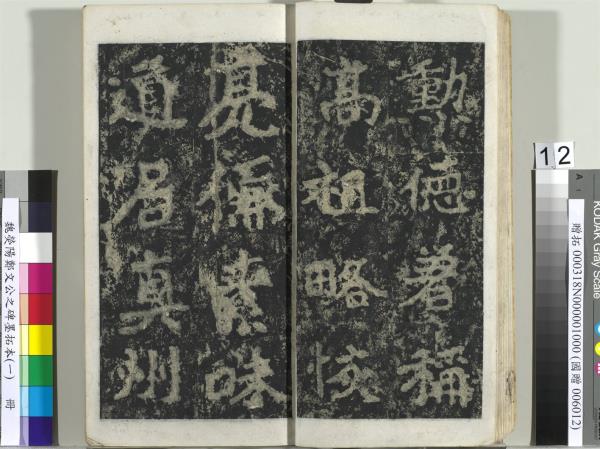 動德著稱
高祖略恢
亮儁素味
道居真州
12
KODAK Gray Scale
贈拓 000318N000001000 (國贈 006012)
魏滎陽鄭文公之碑墨拓本(一) 冊